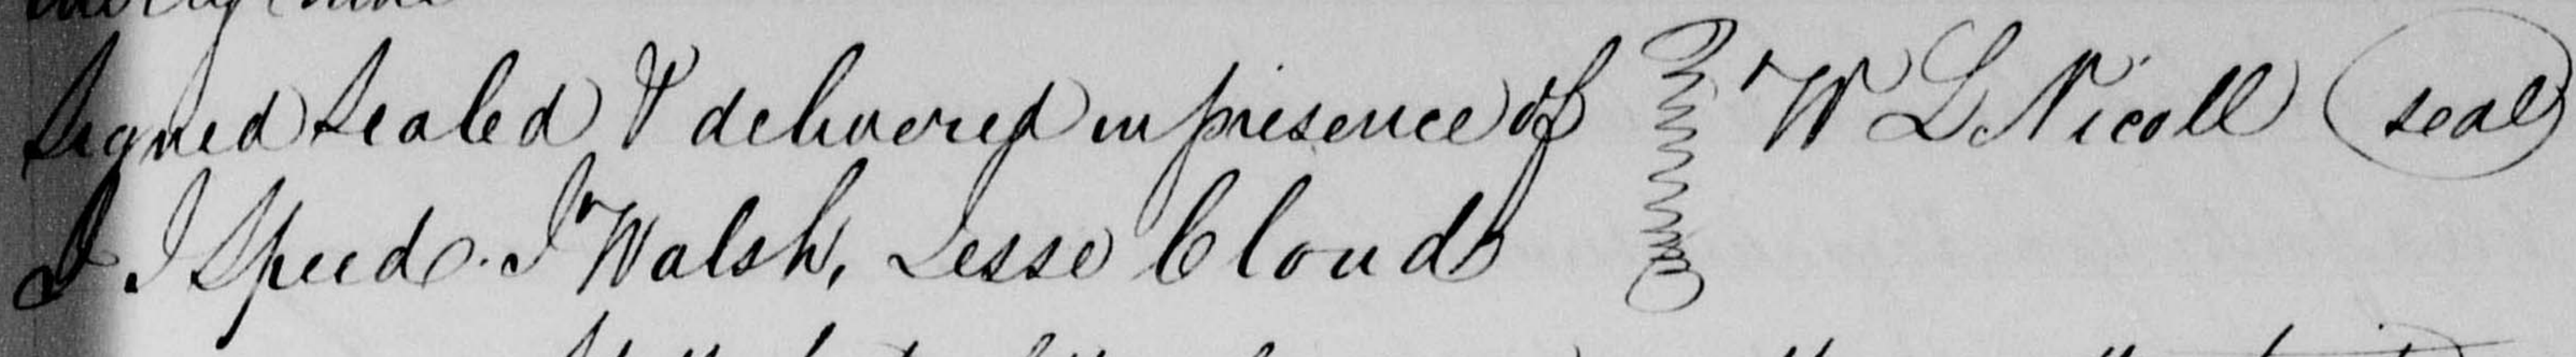 Signed Sealed & delivered in presence of W L Nicoll (seal)
D J Speed. J Walsh, Jesse Cloud